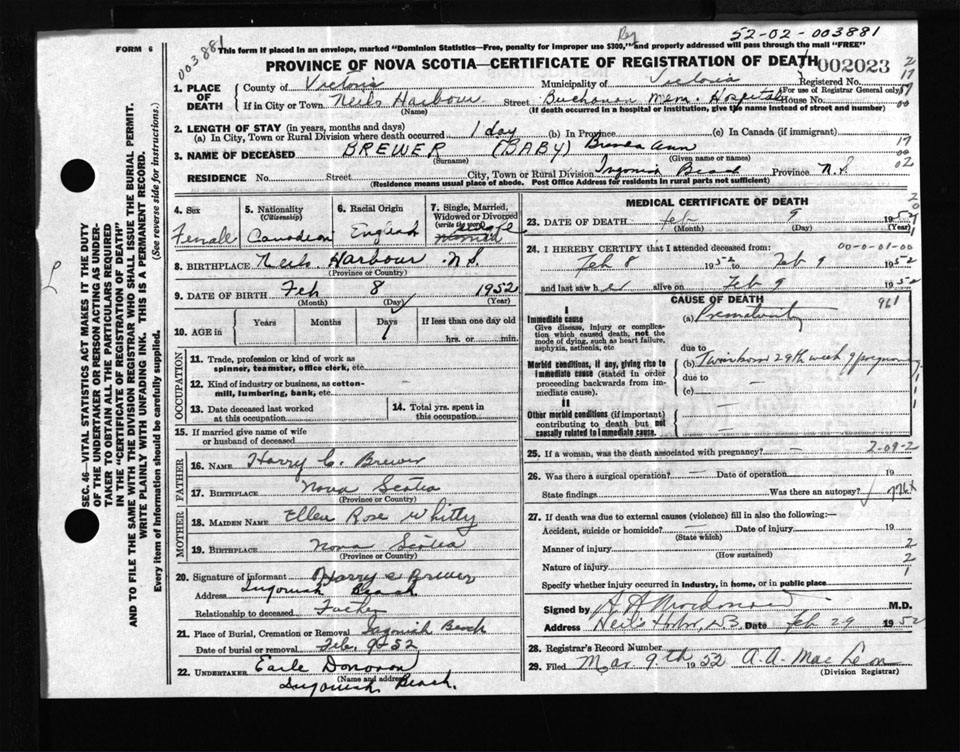 52-02-003881
003881
FORM 6
This form if placed in an envelope, marked "Dominion Statistics—Free, penalty for improper use $300," and properly addressed will pass through the mail "FREE"
PROVINCE OF NOVA SCOTIA—CERTIFICATE OF REGISTRATION OF DEATH 002023
1. PLACE OF DEATH County of Victoria Municipality of Victoria Registered No.
(For use of Registrar General only)
If in City or Town Neils Harbour Street Buchanan Mem. Hospital House No.
(Name) (If death occurred in a hospital or institution, give the name instead of street and number)
2. LENGTH OF STAY (in years, months and days)
(a) In City, Town or Rural Division where death occurred 1 day (b) In Province (c) In Canada (if immigrant)
3. NAME OF DECEASED BREWER (BABY) Brenda Ann
(Surname) (Given name or names)
RESIDENCE No. Street City, Town or Rural Division Ingonish Beach Province N.S.
(Residence means usual place of abode. Post Office Address for residents in rural parts not sufficient)
4. Sex Female
5. Nationality (Citizenship) Canadian
6. Racial Origin English
7. Single, Married, Widowed or Divorced (write the word)
8. BIRTHPLACE Neils Harbour N.S.
(Province or Country)
9. DATE OF BIRTH Feb 8 1952
(Month) (Day) (Year)
10. AGE in Years Months Days 1 If less than one day old hrs. or min.
OCCUPATION
11. Trade, profession or kind of work as spinner, teamster, office clerk, etc.
12. Kind of industry or business, as cotton-mill, lumbering, bank, etc. -
13. Date deceased last worked at this occupation
14. Total yrs. spent in this occupation
15. If married give name of wife or husband of deceased
FATHER
16. NAME Harry C. Brewer
17. BIRTHPLACE Nova Scotia
(Province or Country)
MOTHER
18. MAIDEN NAME Ellen Rose Whitty
19. BIRTHPLACE Nova Scotia
(Province or Country)
20. Signature of informant Harry C Brewer
Address Ingonish Beach
Relationship to deceased Father
21. Place of Burial, Cremation or Removal Ingonish Beach
Date of burial or removal Feb. 9-52
22. UNDERTAKER Earle Donovan
(Name and address)
Ingonish Beach.
MEDICAL CERTIFICATE OF DEATH
23. DATE OF DEATH Feb 9 1952
(Month) (Day)
24. I HEREBY CERTIFY that I attended deceased from: 00-0-01-00
Feb 8 1952 to Feb 9 1952
and last saw her alive on Feb 9 1952
CAUSE OF DEATH 961
I
Immediate cause (a) Prematurity
Give disease, injury or complication which caused death, not the mode of dying, such as heart failure, asphyxia, asthenia, etc.
due to
Morbid conditions, if any, giving rise to immediate cause (stated in order proceeding backwards from immediate cause).
(b) Twin born 29th week
due to
(c)
II
Other morbid conditions (if important) contributing to death but not causally related to immediate cause.
25. If a woman, was the death associated with pregnancy? - 2-09-2
26. Was there a surgical operation? - Date of operation 19
State findings Was there an autopsy?
27. If death was due to external causes (violence) fill in also the following:—
Accident, suicide or homicide? Date of injury 19
(State which)
Manner of injury 2
(How sustained)
Nature of injury 2
Specify whether injury occurred in industry, in home, or in public place 1
Signed by M.D.
Address Date Feb 29 1952
28. Registrar's Record Number
29. Filed Mar 9th 1952 A.A. MacLean
(Division Registrar)
SEC. 46—VITAL STATISTICS ACT MAKES IT THE DUTY OF THE UNDERTAKER OR PERSON ACTING AS UNDERTAKER TO OBTAIN ALL THE PARTICULARS REQUIRED IN THE "CERTIFICATE OF REGISTRATION OF DEATH" AND TO FILE THE SAME WITH THE DIVISION REGISTRAR WHO SHALL ISSUE THE BURIAL PERMIT.
WRITE PLAINLY WITH UNFADING INK. THIS IS A PERMANENT RECORD.
Every item of information should be carefully supplied. (See reverse side for instructions.)